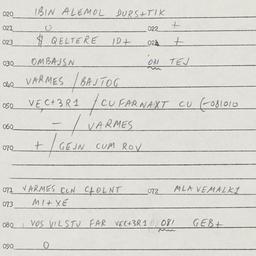 020 IBIN ALEMOL DURS+TIK
021 U 022 +
023 $ QELTERE ID+ 024 +
030 OMBAJSN 031 TEJ
040 VARMES / BAJTOG
050 VEC+3R1 / CUFARNAXT CU (-081010
060 - / VARMES
070 + / GEJN CUM ROV
071 VARMES 072 MLAVEMALK1
073 MI+XE
080 VOS VILSTU FAR VEC+3R1 081 GEB+
090 O